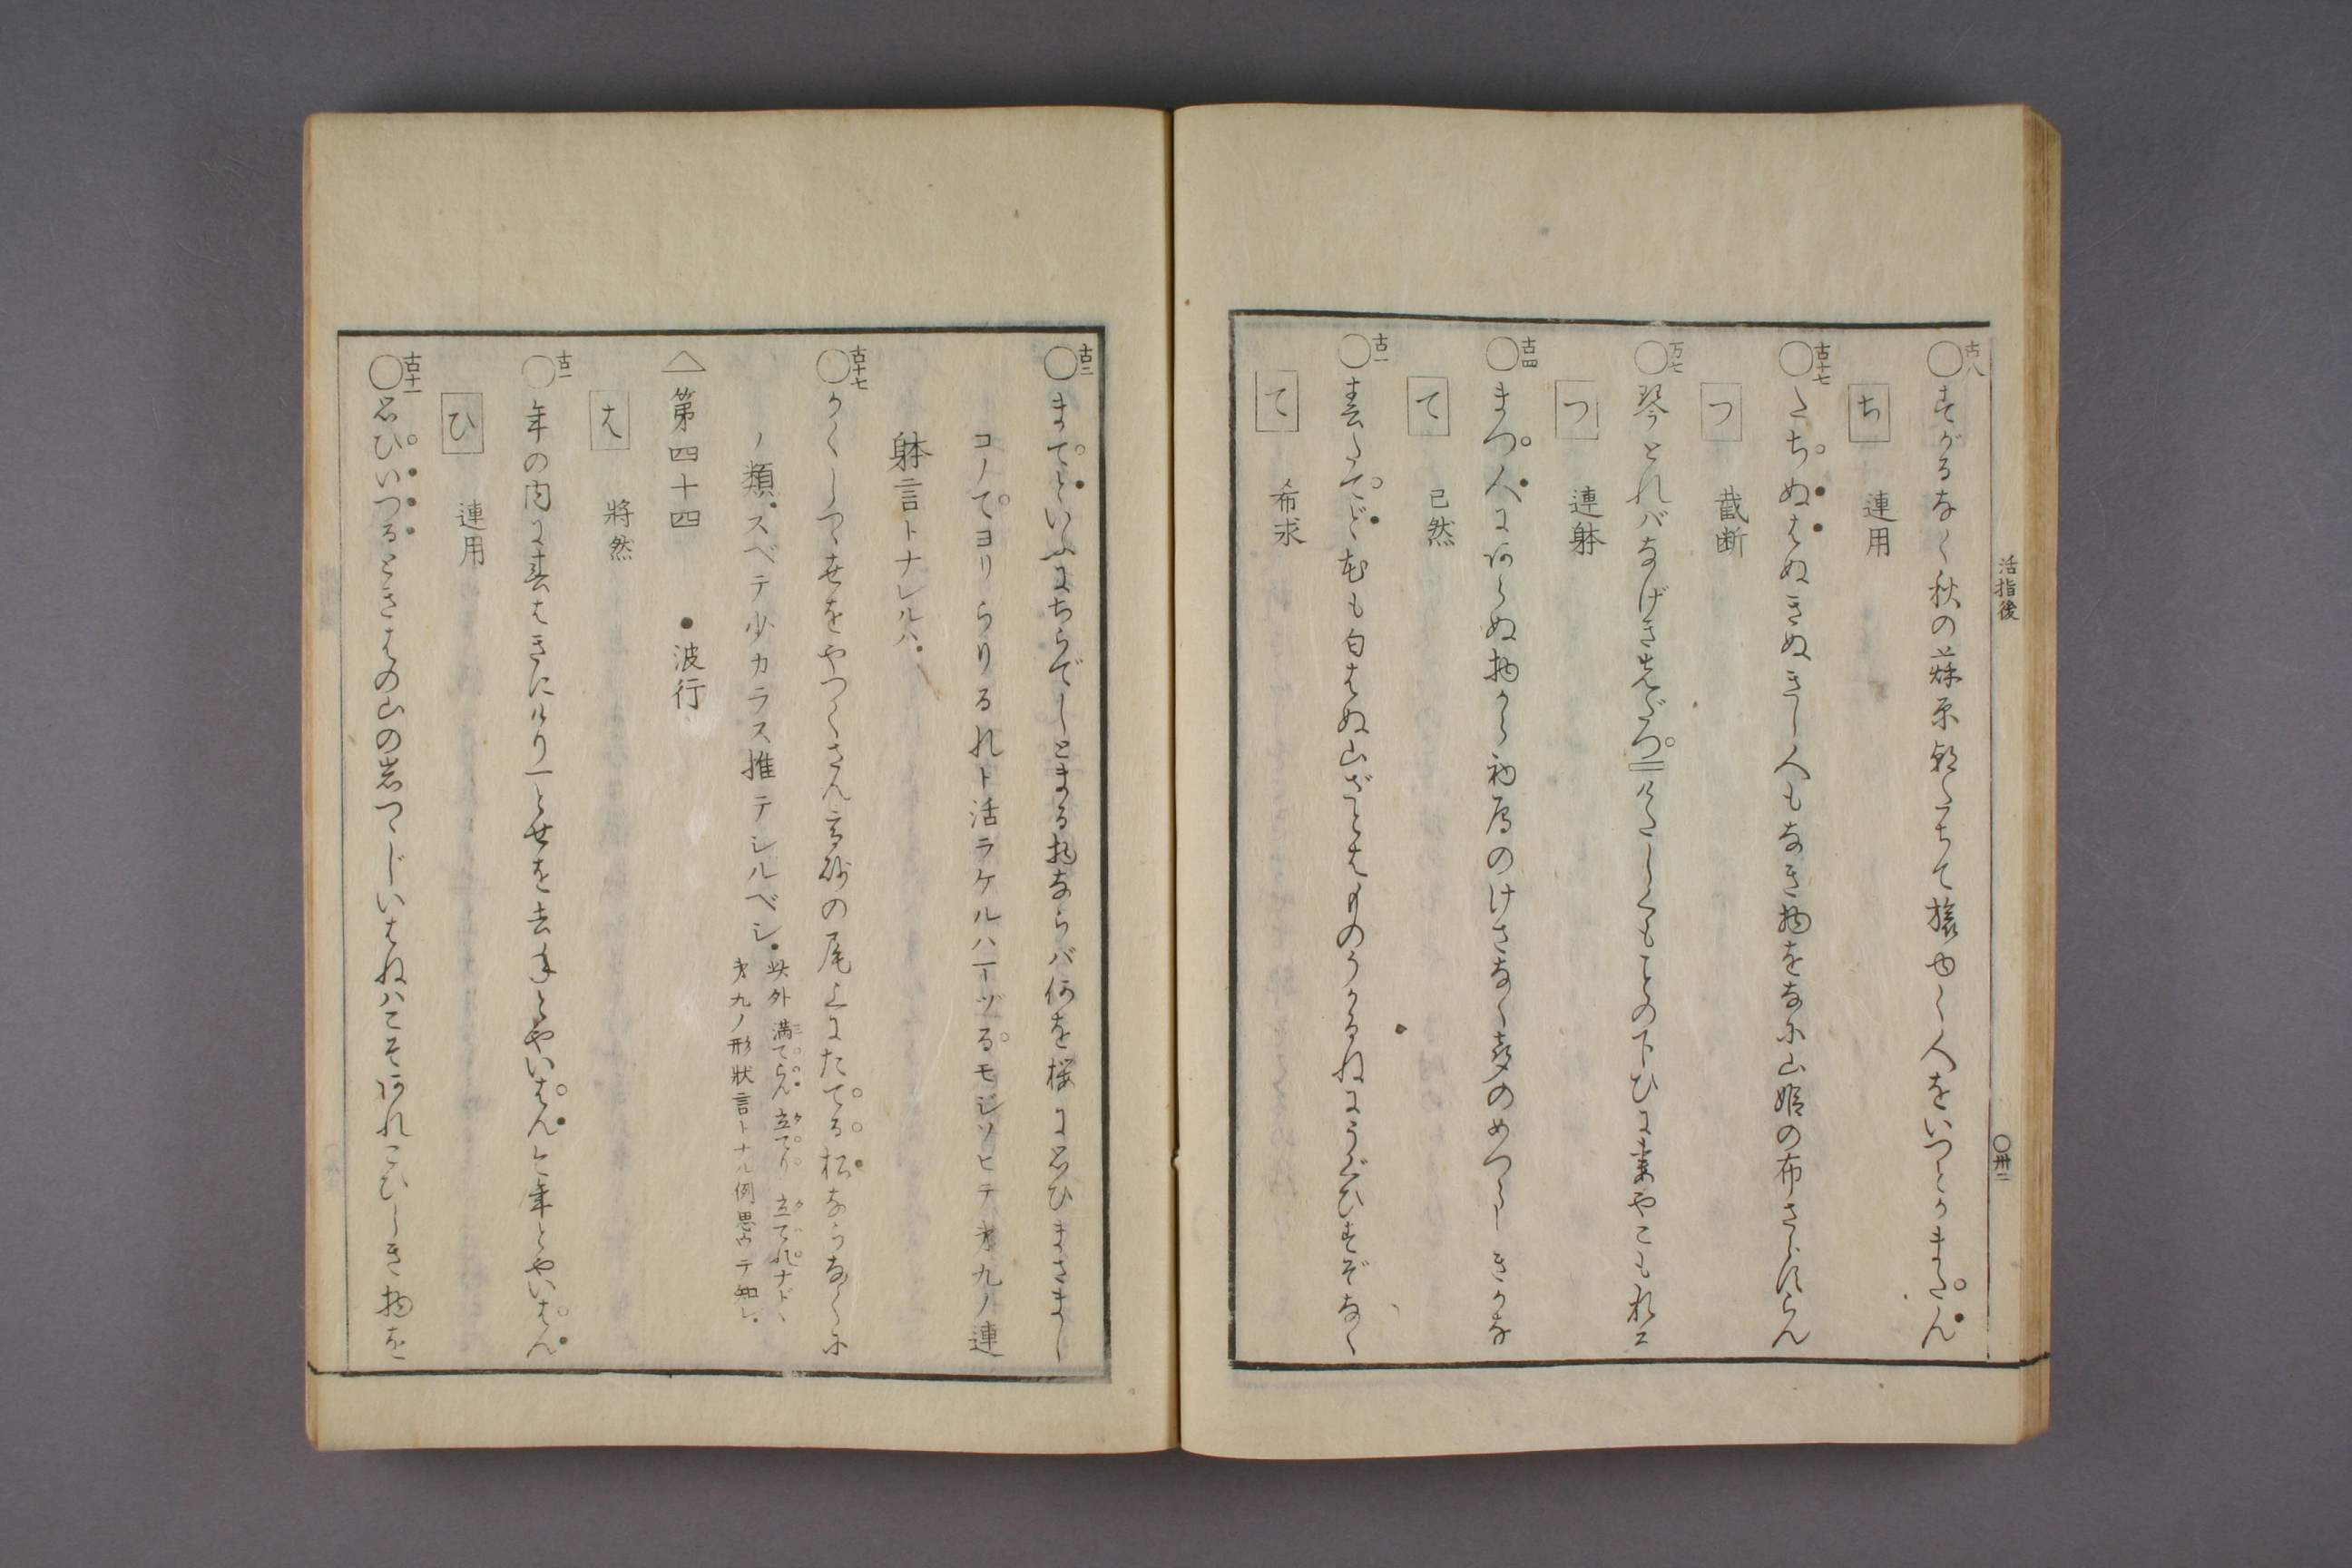 古八
○すがるなく秋の萩原朝たちて旅ゆく人をいつとかまたん
ち 連用
古十七
○たちぬはぬきぬきし人もなき物をなに山姫の布さらすらん
つ 截断
万七
○琴とれバなげきさきだつ＝けだしくもことの下ひに妻やこもれる
つ 連躰
古四
○まつ人にあらぬ物から初鴈のけさなく聲のめつらしきかな
て 已然
古一
○春たてど花も匂はぬ山ざとはものうかるねにうぐひすぞなく
て 希求
活指後
○卌二
古二
○まてといふにちらでしとまる物ならバ何を桜に思ひまさまし
コノてヨリらりるれト活ラケルハ一ツるモジソヒテオ九ノ連
躰言トナレルハ
古十七
○かくしつゝ世をやつくさん高砂の尾上にたてる松ならなくに
ノ類スベテ少カラス推テシルベシ
此外満てらん立てり立てれナド
オ九ノ形状言トナル例思ウテ知ベシ
△第四十四 ●波行
は 将然
古一
○年の内に春はきにけり一とせを去年とやいはんと年とやいはん
ひ 連用
古十一
○思ひいつるときはの山の岩つゝじいはねハこそあれこひしき物を